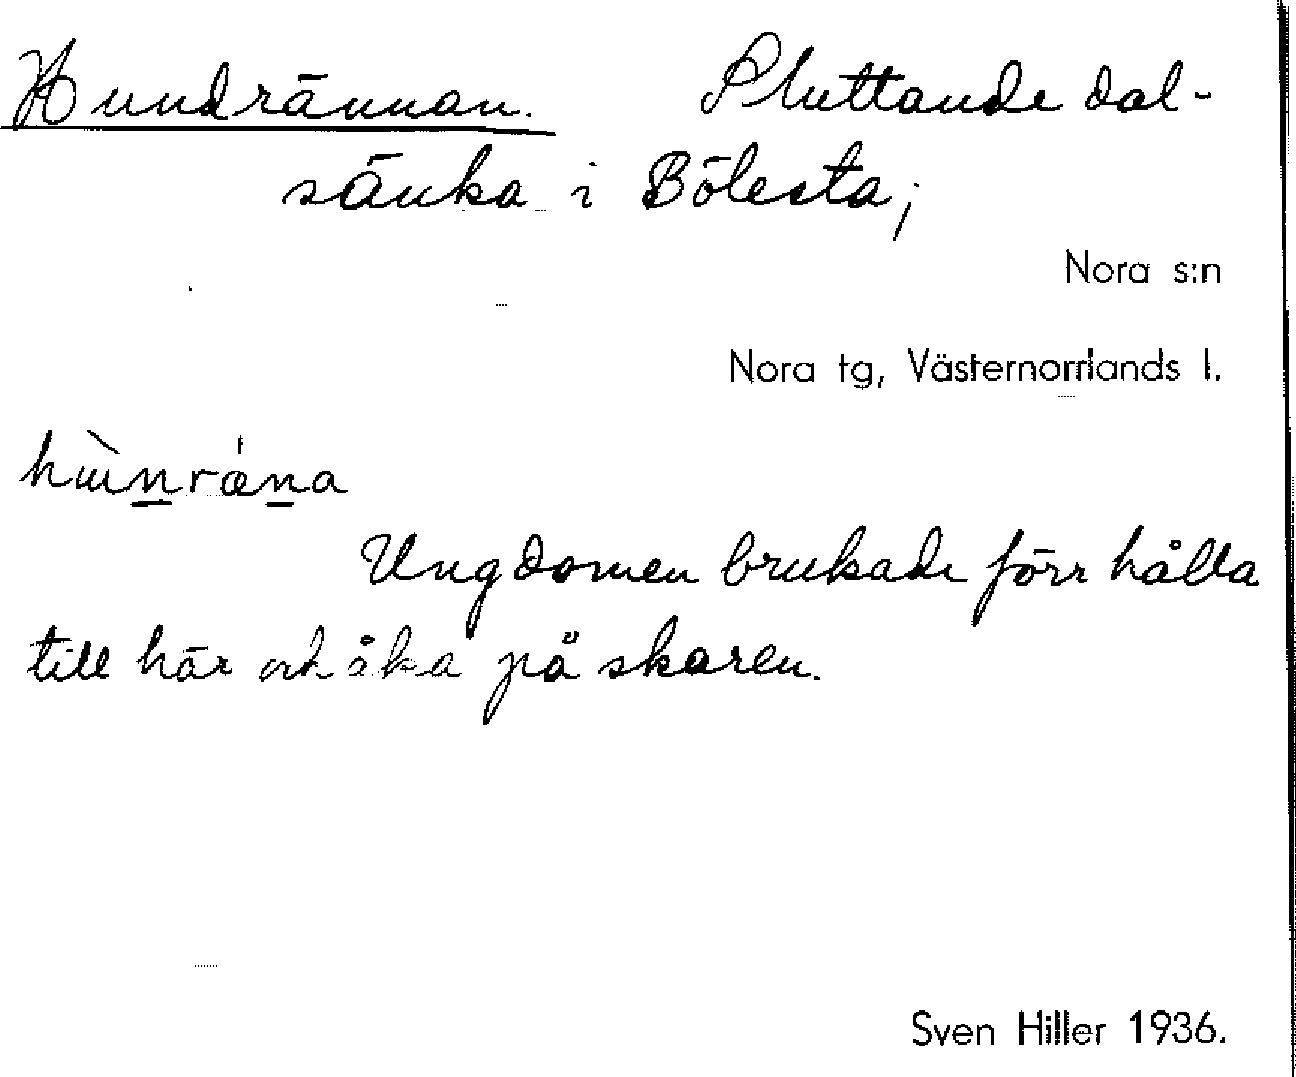 Hundrännan. Sluttande dal-
sänka i Bölesta;
Nora s:n
Nora tg, Västernorrlands l.
hùnræ̀na
Ungdomen brukade förr hålla
till här och åka på skaren.
Sven Hiller 1936.